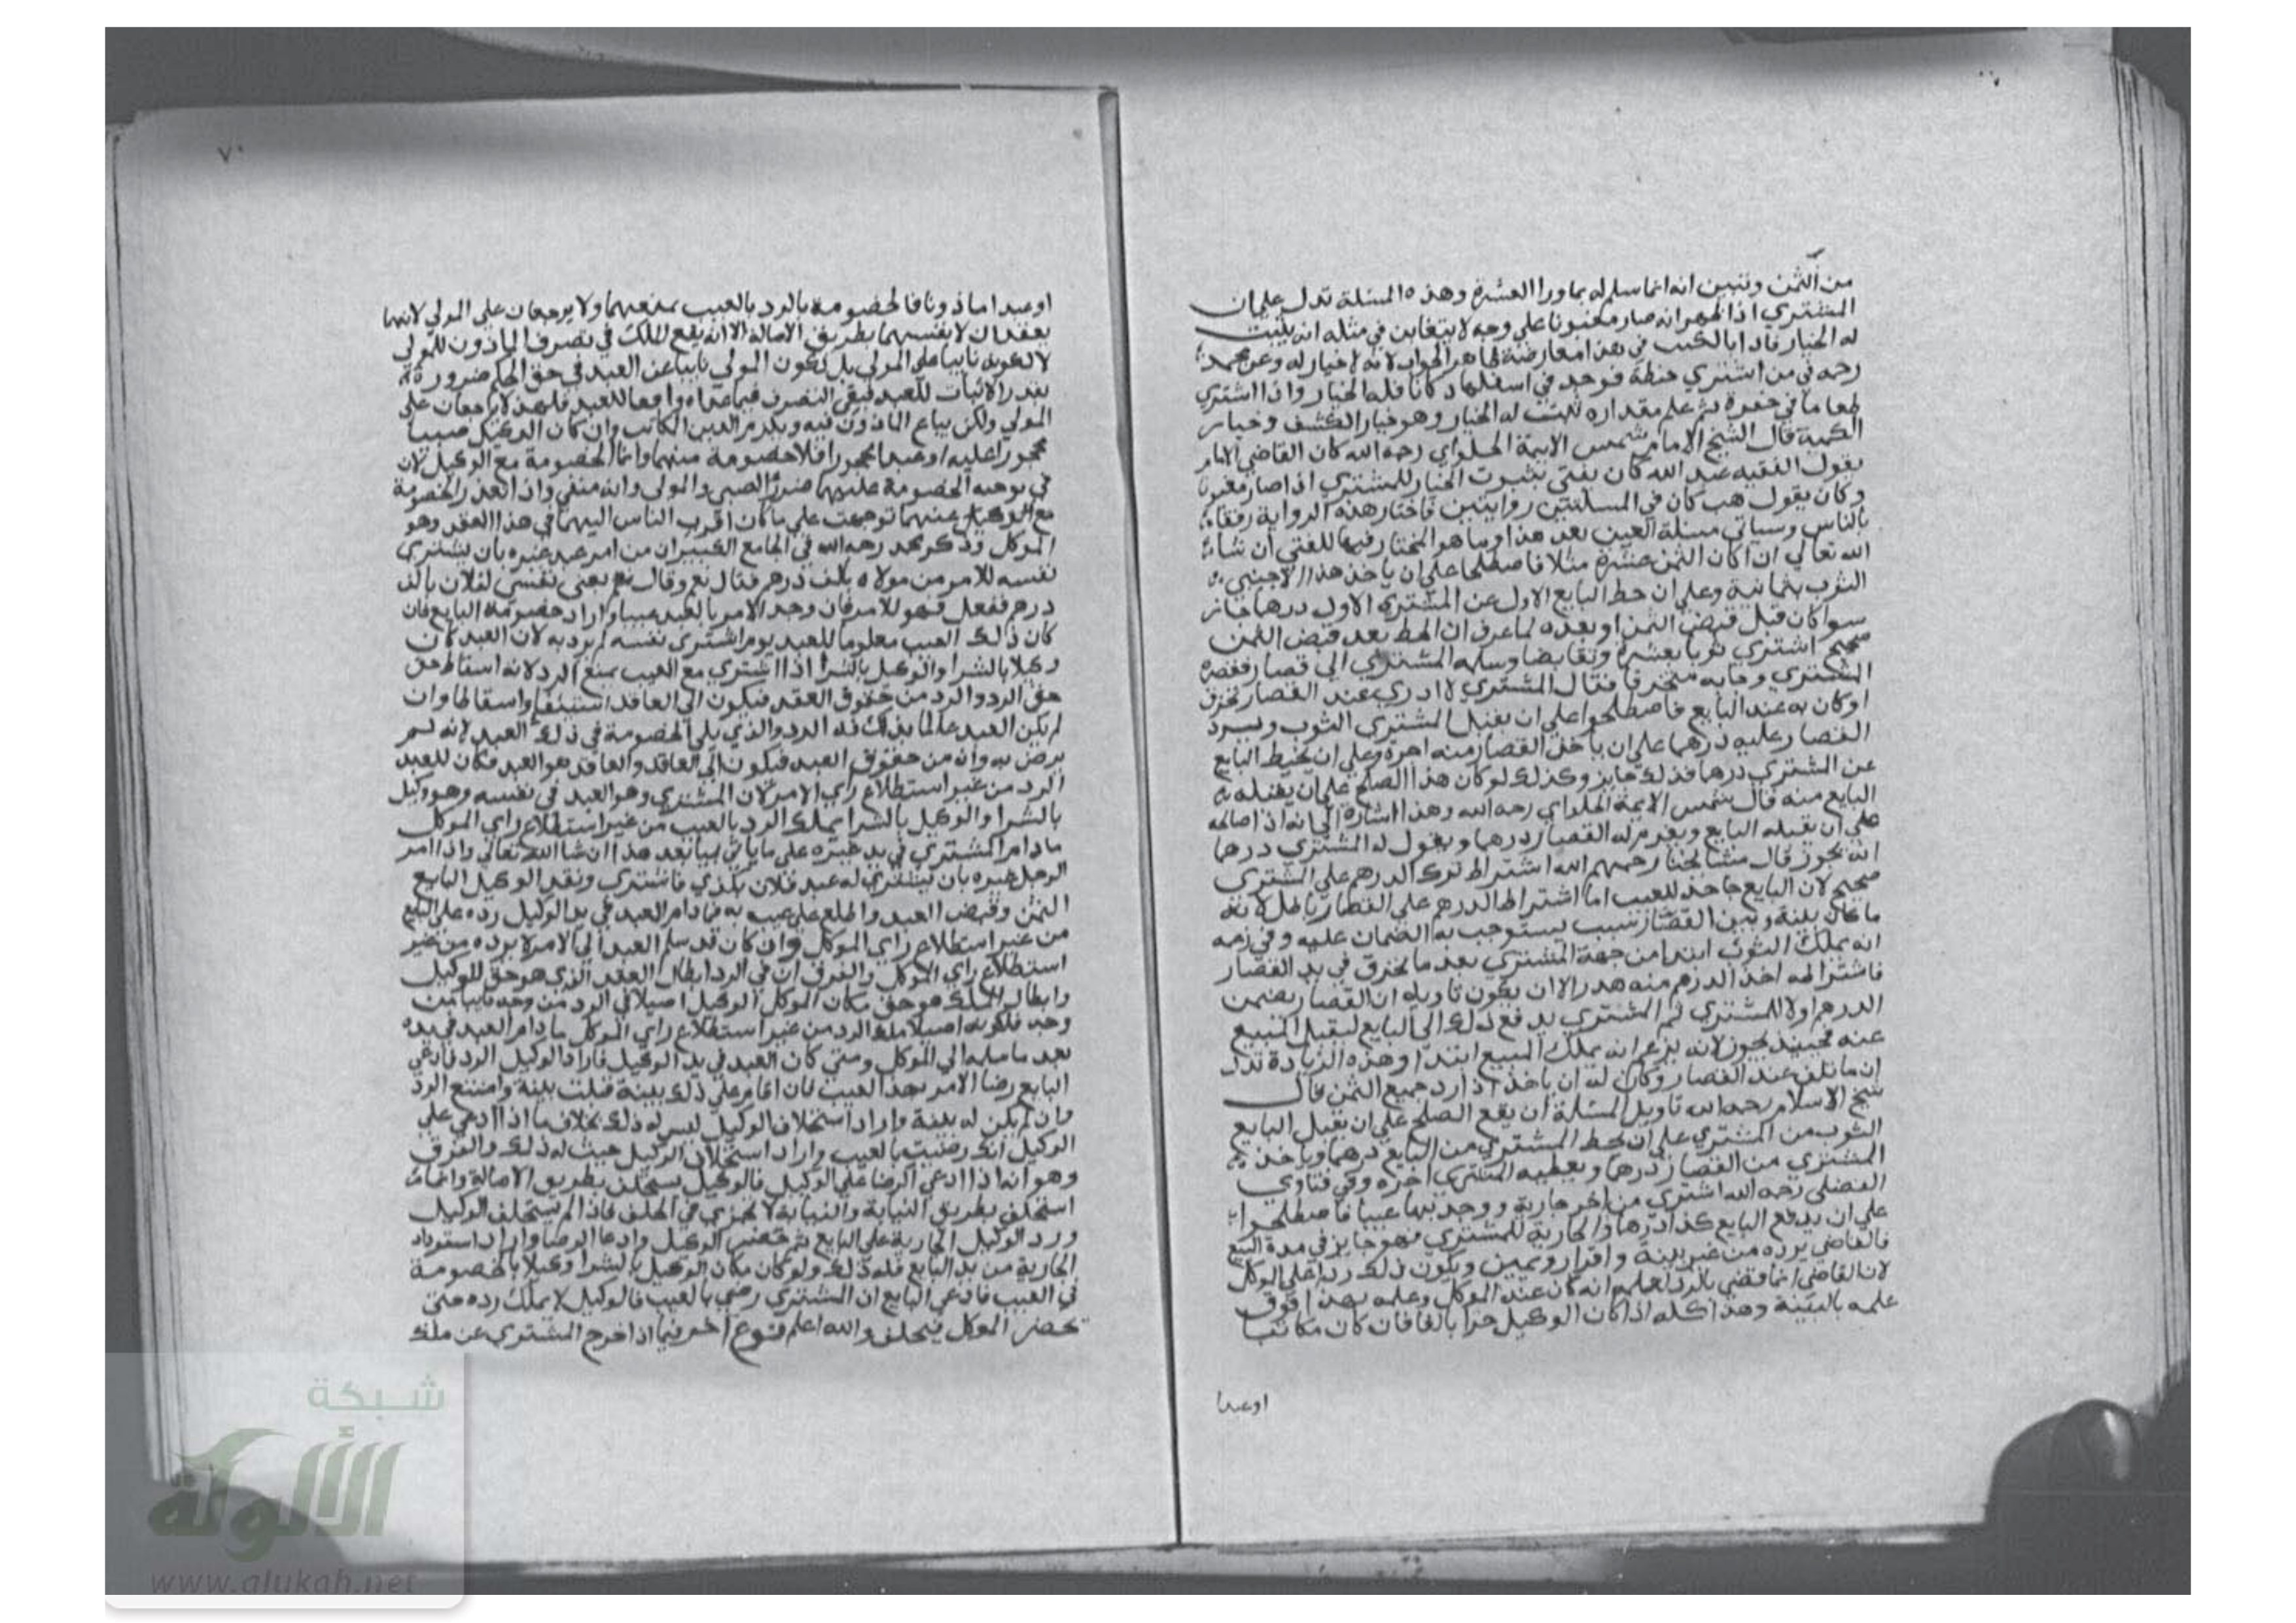 من الثمن وتبين انه انما سلم له بما ورا العشرة وهذه المسئلة تدل على ان
المشتري اذا ظهر انه صار مغبونا على وجه لا يتغابن في مثله انه يثبت
له الخيار لانه لا خيار له وعن محمد
رحمه في من اشتري حنطة فوجد في اسفلها دكانا فله الخيار واذا اشتري
طعاما في حفرة ثم علم مقداره ثبت له الخيار وهو خيار الكشف وخيار
الكمية قال الشيخ الامام شمس الايمة الحلواي رحمه الله كان القاضي الامام
يقول الفقيه عبد الله كان يفتي بثبوت الخيار للمشتري اذا صار مغبونا
وكان يقول هب كان في المسئلتين روايتين فاختار هذه الرواية رفقا
بالناس وسياتي مسئلة العين بعد هذا وما هو المختار فيها للفتي ان شاء
الله تعالي اذا كان الثمن عشرة مثلا فاصطلحا علي ان ياخذ هذا الاجنبي
الثوب بثمانية وعلي ان حط البايع الاول عن المشتري الاول درهما جاز
سوا كان قبل قبض الثمن او بعده لما عرف ان الحط بعد قبض الثمن
صحيح اشتري ثوبا بعشرة وتقابضا وسلمه المشتري الي قصار فقصره
المشتري وجابه متخرقا فقال المشتري لا ادري عند القصار تخرق
او كان به عند البايع فاصطلحوا علي ان يقبل المشتري الثوب ويرد
القصار عليه درهما علي ان ياخذ القصار منه اجره وعلي ان يحط البايع
عن المشتري درهما فذلك جايز وكذلك لو كان هذا الصلح علي ان يقبله
البايع منه قال شمس الايمة الحلواي رحمه الله وهذا اشارة الي انه اذا صالحه
علي ان يقبله البايع ويغرم له القصار درهما ويقول له المشتري درهما
انه يجوز قال مشايخنا رحمهم الله اشتراط ترك الدرهم علي المشتري
صحيح لان البايع جاحد للعيب اما اشتراط الدرهم علي القصار باطل لانه
ما كان بينه وبين القصار سبب يستوجب به الضمان عليه وفي زعمه
انه يملك الثوب ابتدا من جهة المشتري بعد ما تخرق في يد القصار
فاشتراطه اخذ الدرهم منه هدر الا ان يكون تاويله ان القصار يضمن
الدرهم اولا للمشتري ثم المشتري يدفع ذلك الي البايع ليقبل المبيع
عنه فحينيذ يجوز لانه يزعم انه يملك المبيع ابتدا وهذه الزيادة تدل
ان ما تلف عند القصار وكان له ان ياخذ اذا رد جميع الثمن قال
شيخ الاسلام رحمه الله تاويل المسئلة ان يقع الصلح علي ان يقبل البايع
الثوب من المشتري علي ان يحط المشتري من البايع درهما وياخذ
المشتري من القصار درهما ويعطيه المشتري اجره وفي فتاوي
الفضلي رحمه الله اشتري من اخر جارية ووجد بها عيبا فاصطلحوا
علي ان يدفع البايع كذا درهما والجارية للمشتري فهو جايز في مدة البيع
فالقاضي يرده من غير بينة واقرار ويمين ويكون ذلك ردا علي الوكل
لان القاضي انما قضي بالرد لعلمه انه كان عند الموكل وعلمه بهذا فوق
علمه بالبينة وهذا كله اذا كان الوكيل حرا بالغا فان كان مكاتبا
اوعبدا
٧٠
اوعبدا ماذونا فالخصومة بالرد بالعيب معهما ولا يرجعان علي المولي لانهما
يعقدان لانفسهما بطريق الاصالة الا انه يقع الملك في تصرف الماذون للمولي
لا لكونه نايبا علي المولي بل لكون المولي نايبا عن العبد في حق الحكم ضرورة
تعذر الاثبات للعبد فبقي التصرف فيما عداه واقعا للعبد فلهذا لا يرجعان علي
المولي ولكن يباع الماذون فيه ويلزم الدين المكاتب وان كان الوكيل صبيا
محجورا عليه او عبدا محجورا فلا خصومة معهما وانما الخصومة مع الوكيل لان
في توجيه الخصومة عليهما ضرر الصبي والمولي وانه منفي واذا تعذر الخصومة
مع الوكيل عنهما توجهت علي ما كان اقرب الناس اليهما في هذا العقد وهو
الموكل وذكر محمد رحمه الله في الجامع الكبير ان من امر عبد غيره بان يشتري
نفسه للامر من مولاه بالف درهم فقال نعم وقال نعم بعني نفسي لفلان بالف
درهم ففعل فهو للامر فان وجد الامر بالعبد عيبا واراد خصومة البايع فان
كان ذلك العيب معلوما للعبد يوم اشتري نفسه لم يرد به لان العبد كان
وكيلا بالشرا والوكيل بالشرا اذا اشتري مع العيب يمنع الرد لانه اسقاط حق
حق الرد والرد من حقوق العقد فيكون الي العاقد استيفا واسقاطا وان
لم يكن العبد عالما بذلك فله الرد والذي يلي الخصومة في ذلك العبد لانه لم
يرض به وانه من حقوق العبد فيكون الي العاقد والعاقد هو العبد فكان للعبد
الرد من غير استطلاع راي الامر لان المشتري وهو العبد في نفسه وهو وكيل
بالشرا والوكيل بالشرا يملك الرد بالعيب من غير استطلاع راي الموكل
ما دام المشتري في يد غيره علي ما ياتي بيانه بعد هذا ان شا الله تعالي واذا امر
الرجل غيره بان يشتري له عبد فلان بكذي فاشتري ونقد الوكيل البايع
الثمن وقبض العبد واطلع علي عيب به فما دام العبد في يد الوكيل رده علي البايع
من غير استطلاع راي الموكل وان كان قد سلم العبد الي الامر لا يرده من غير
استطلاع راي الموكل والفرق ان في الرد ابطال العقد الذي هو حق للوكيل
وابطال الملك هو حق مكان الموكل الوكيل اصيلا في الرد من وجه نايبا من
وجه فلكونه اصيلا ملك الرد من غير استطلاع راي الموكل ما دام العبد في يده
بعد ما سلمه الي الموكل ومتي كان العبد في يد الوكيل فاراد الوكيل الرد فادعي
البايع رضا الامر بهذا العيب فان اقام علي ذلك بينة قبلت بينة وامتنع الرد
وان لم يكن له بينة واراد استحلاف الوكيل ليس له ذلك بخلاف ما اذا ادعي علي
الوكيل انك رضيت بالعيب واراد استحلاف الوكيل حيث له ذلك والفرق
وهو انه اذا ادعي الرضا علي الوكيل فالوكيل يستحلف بطريق الاصالة وانما
استحلف بطريق النيابة والنيابة لا تجزي في الحلف فاذا لم يستحلف الوكيل
ورد الوكيل الجارية علي البايع ثم حضر الوكيل وادعا الرضا واراد استرداد
الجارية من يد البايع فله ذلك ولو كان مكان الوكيل بالشرا وكيلا بالخصومة
في العيب فادعي البايع ان المشتري رضي بالعيب فالوكيل لا يملك رده حتي
يحضر الموكل فيحلف والله اعلم فنوع اخر فيما اذا اخرج المشتري عن ملك
شبكة
الألوكة
www.alukah.net